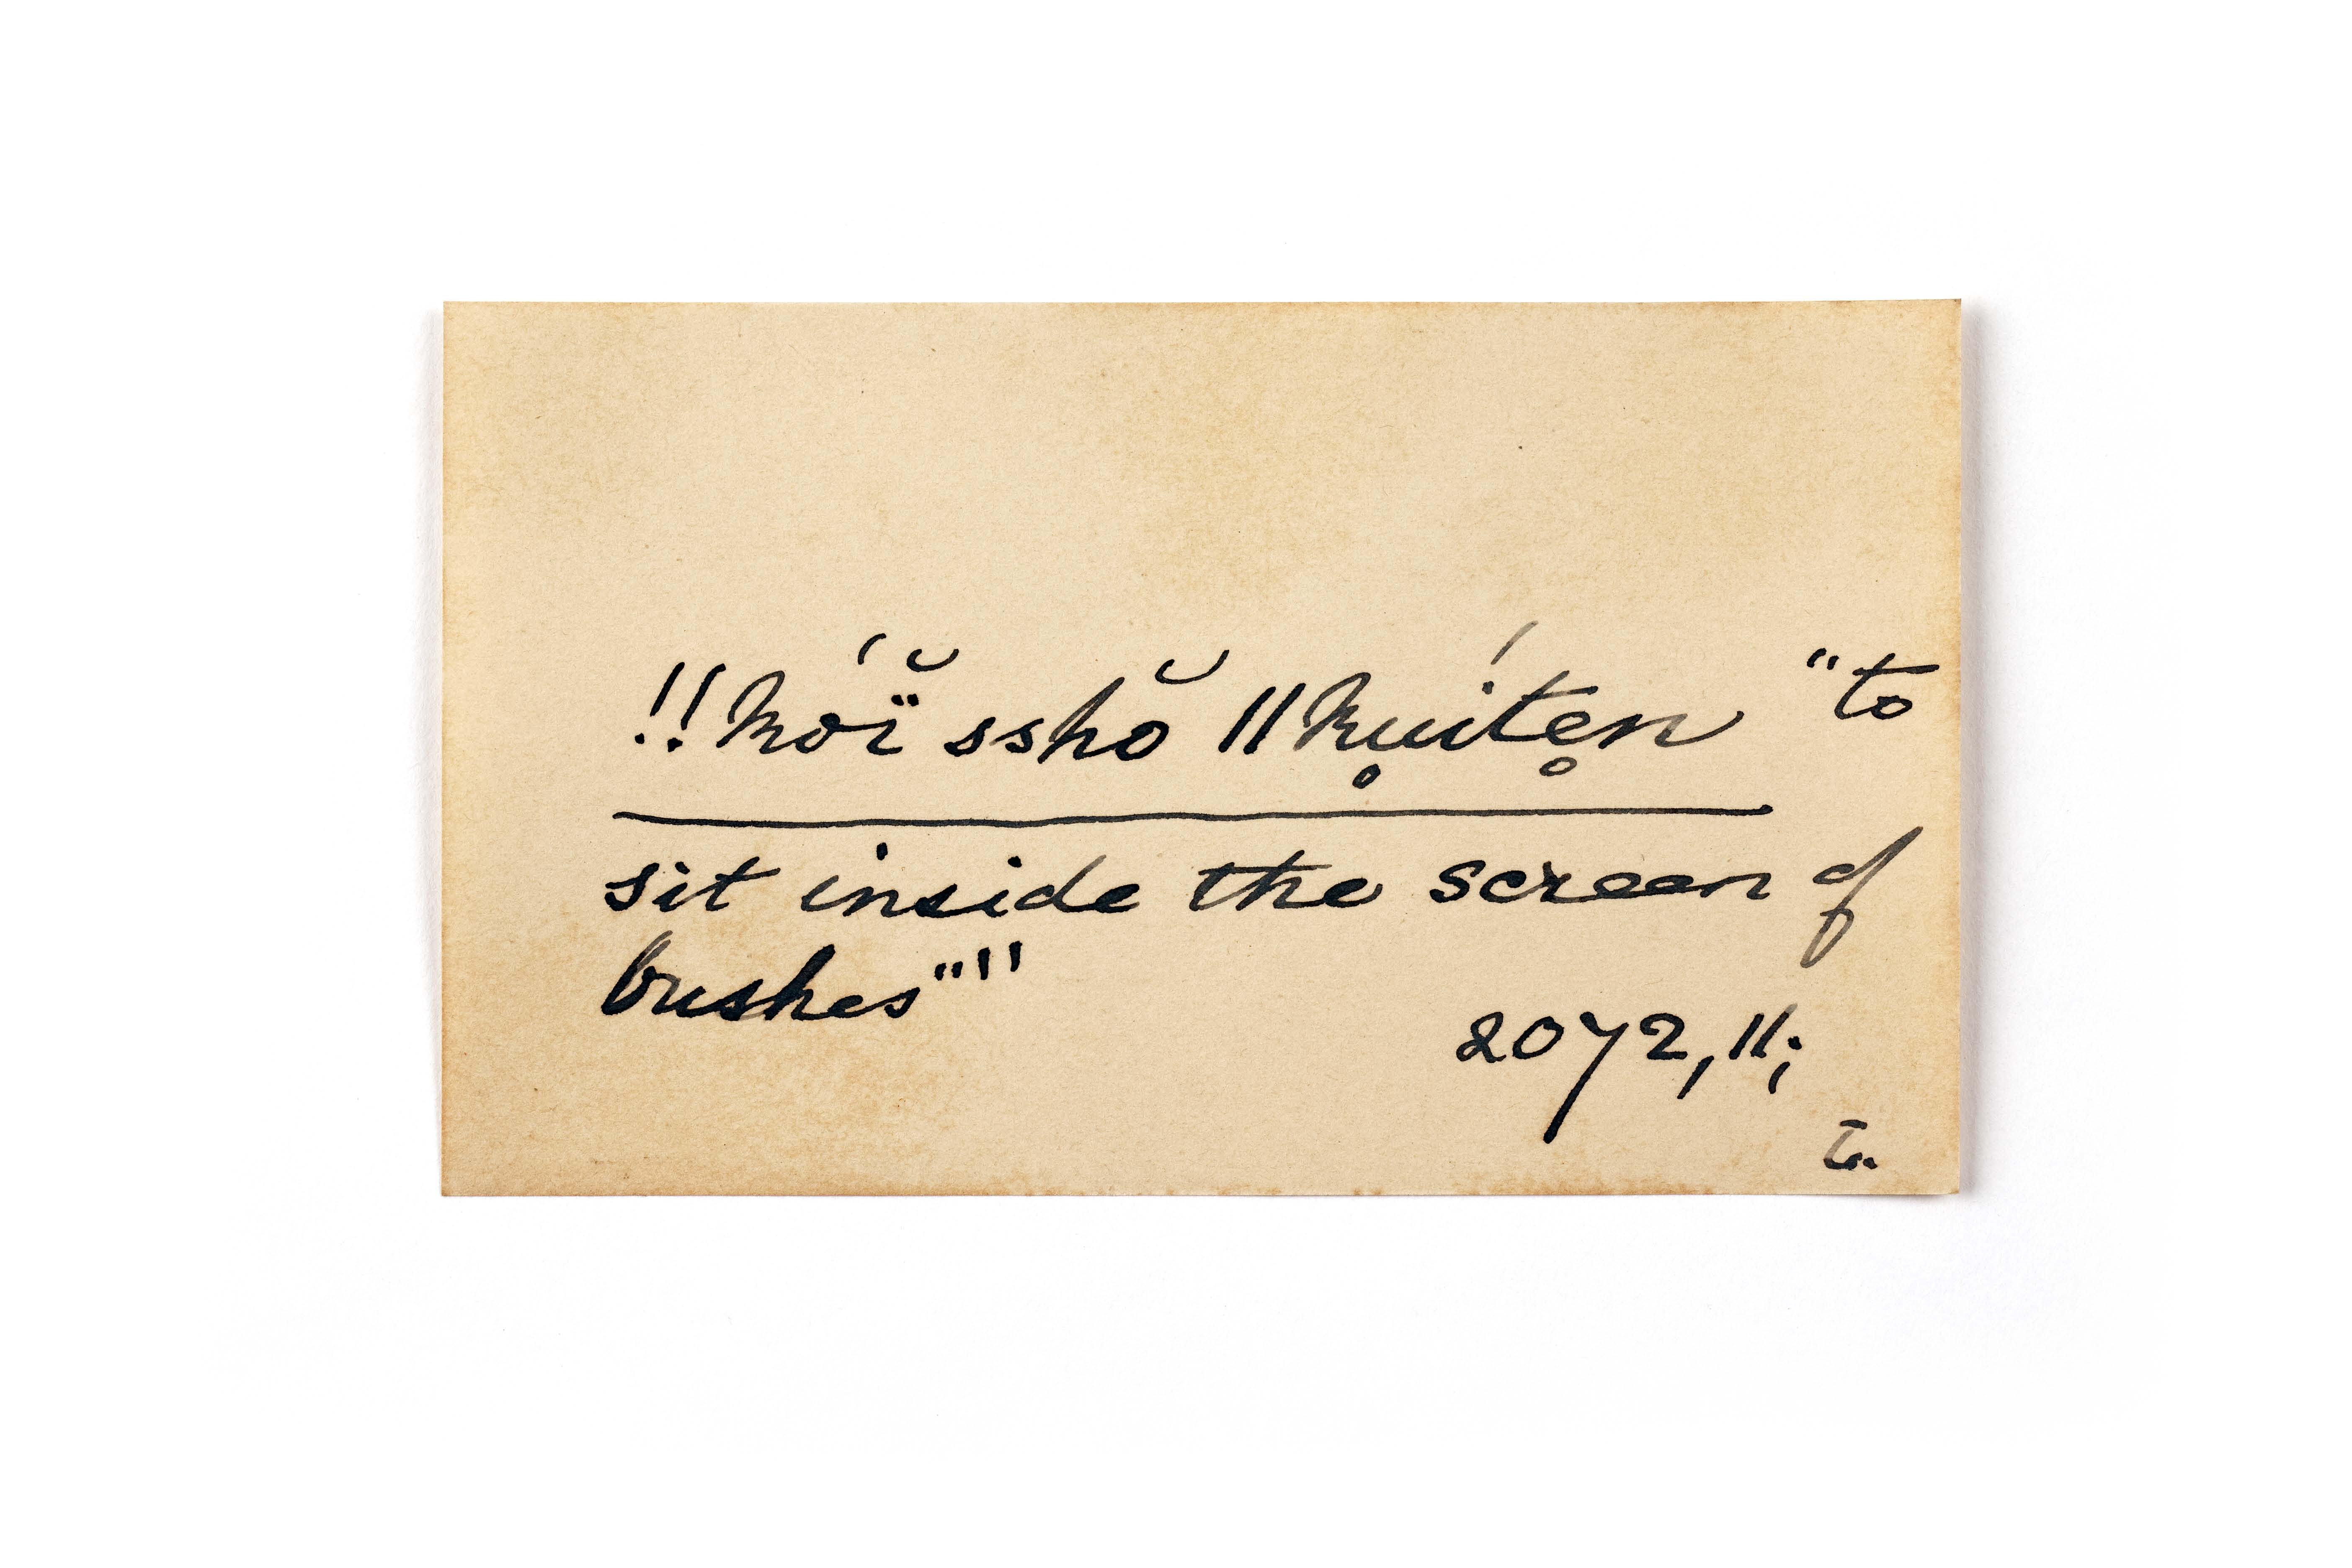 !!kóï̆ sshŏ ǁku̥íte̥n "to
sit inside the screen of
bushes""
2072, 11;